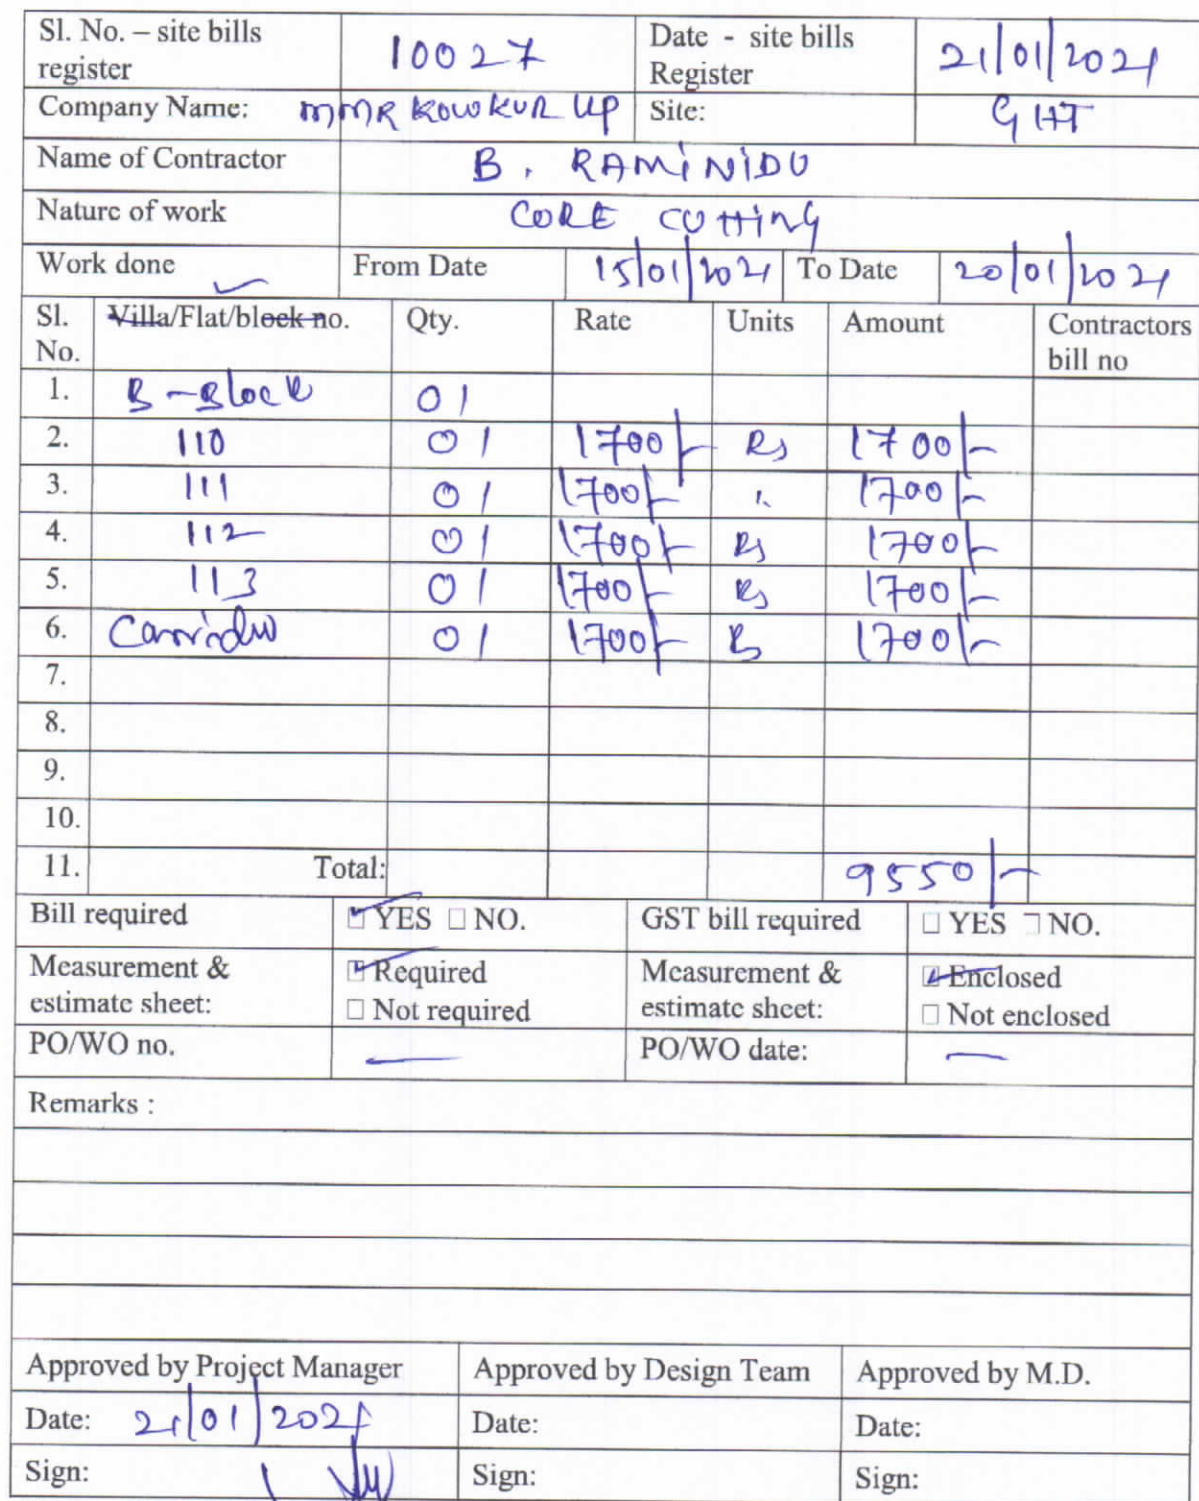 Sl. No. – site bills register 10027 Date - site bills Register 21/01/2021
Company Name: MMR KOWKUR LLP Site: GHT
Name of Contractor B. RAMINIDU
Nature of work CORE CUTTING
Work done From Date 15/01/2021 To Date 20/01/2021
Sl. No. Villa/Flat/block no. Qty. Rate Units Amount Contractors bill no
1. B-Block 01
2. 110 01 1700/- Rs 1700/-
3. 111 01 1700/- " 1700/-
4. 112 01 1700/- Rs 1700/-
5. 113 01 1700/- Rs 1700/-
6. Corridor 01 1700/- Rs 1700/-
7.
8.
9.
10.
11. Total: 9550/-
Bill required YES NO. GST bill required YES NO.
Measurement & estimate sheet: Required Not required Measurement & estimate sheet: Enclosed Not enclosed
PO/WO no. — PO/WO date: —
Remarks :
Approved by Project Manager Approved by Design Team Approved by M.D.
Date: 21/01/2021 Date: Date:
Sign: Sign: Sign: